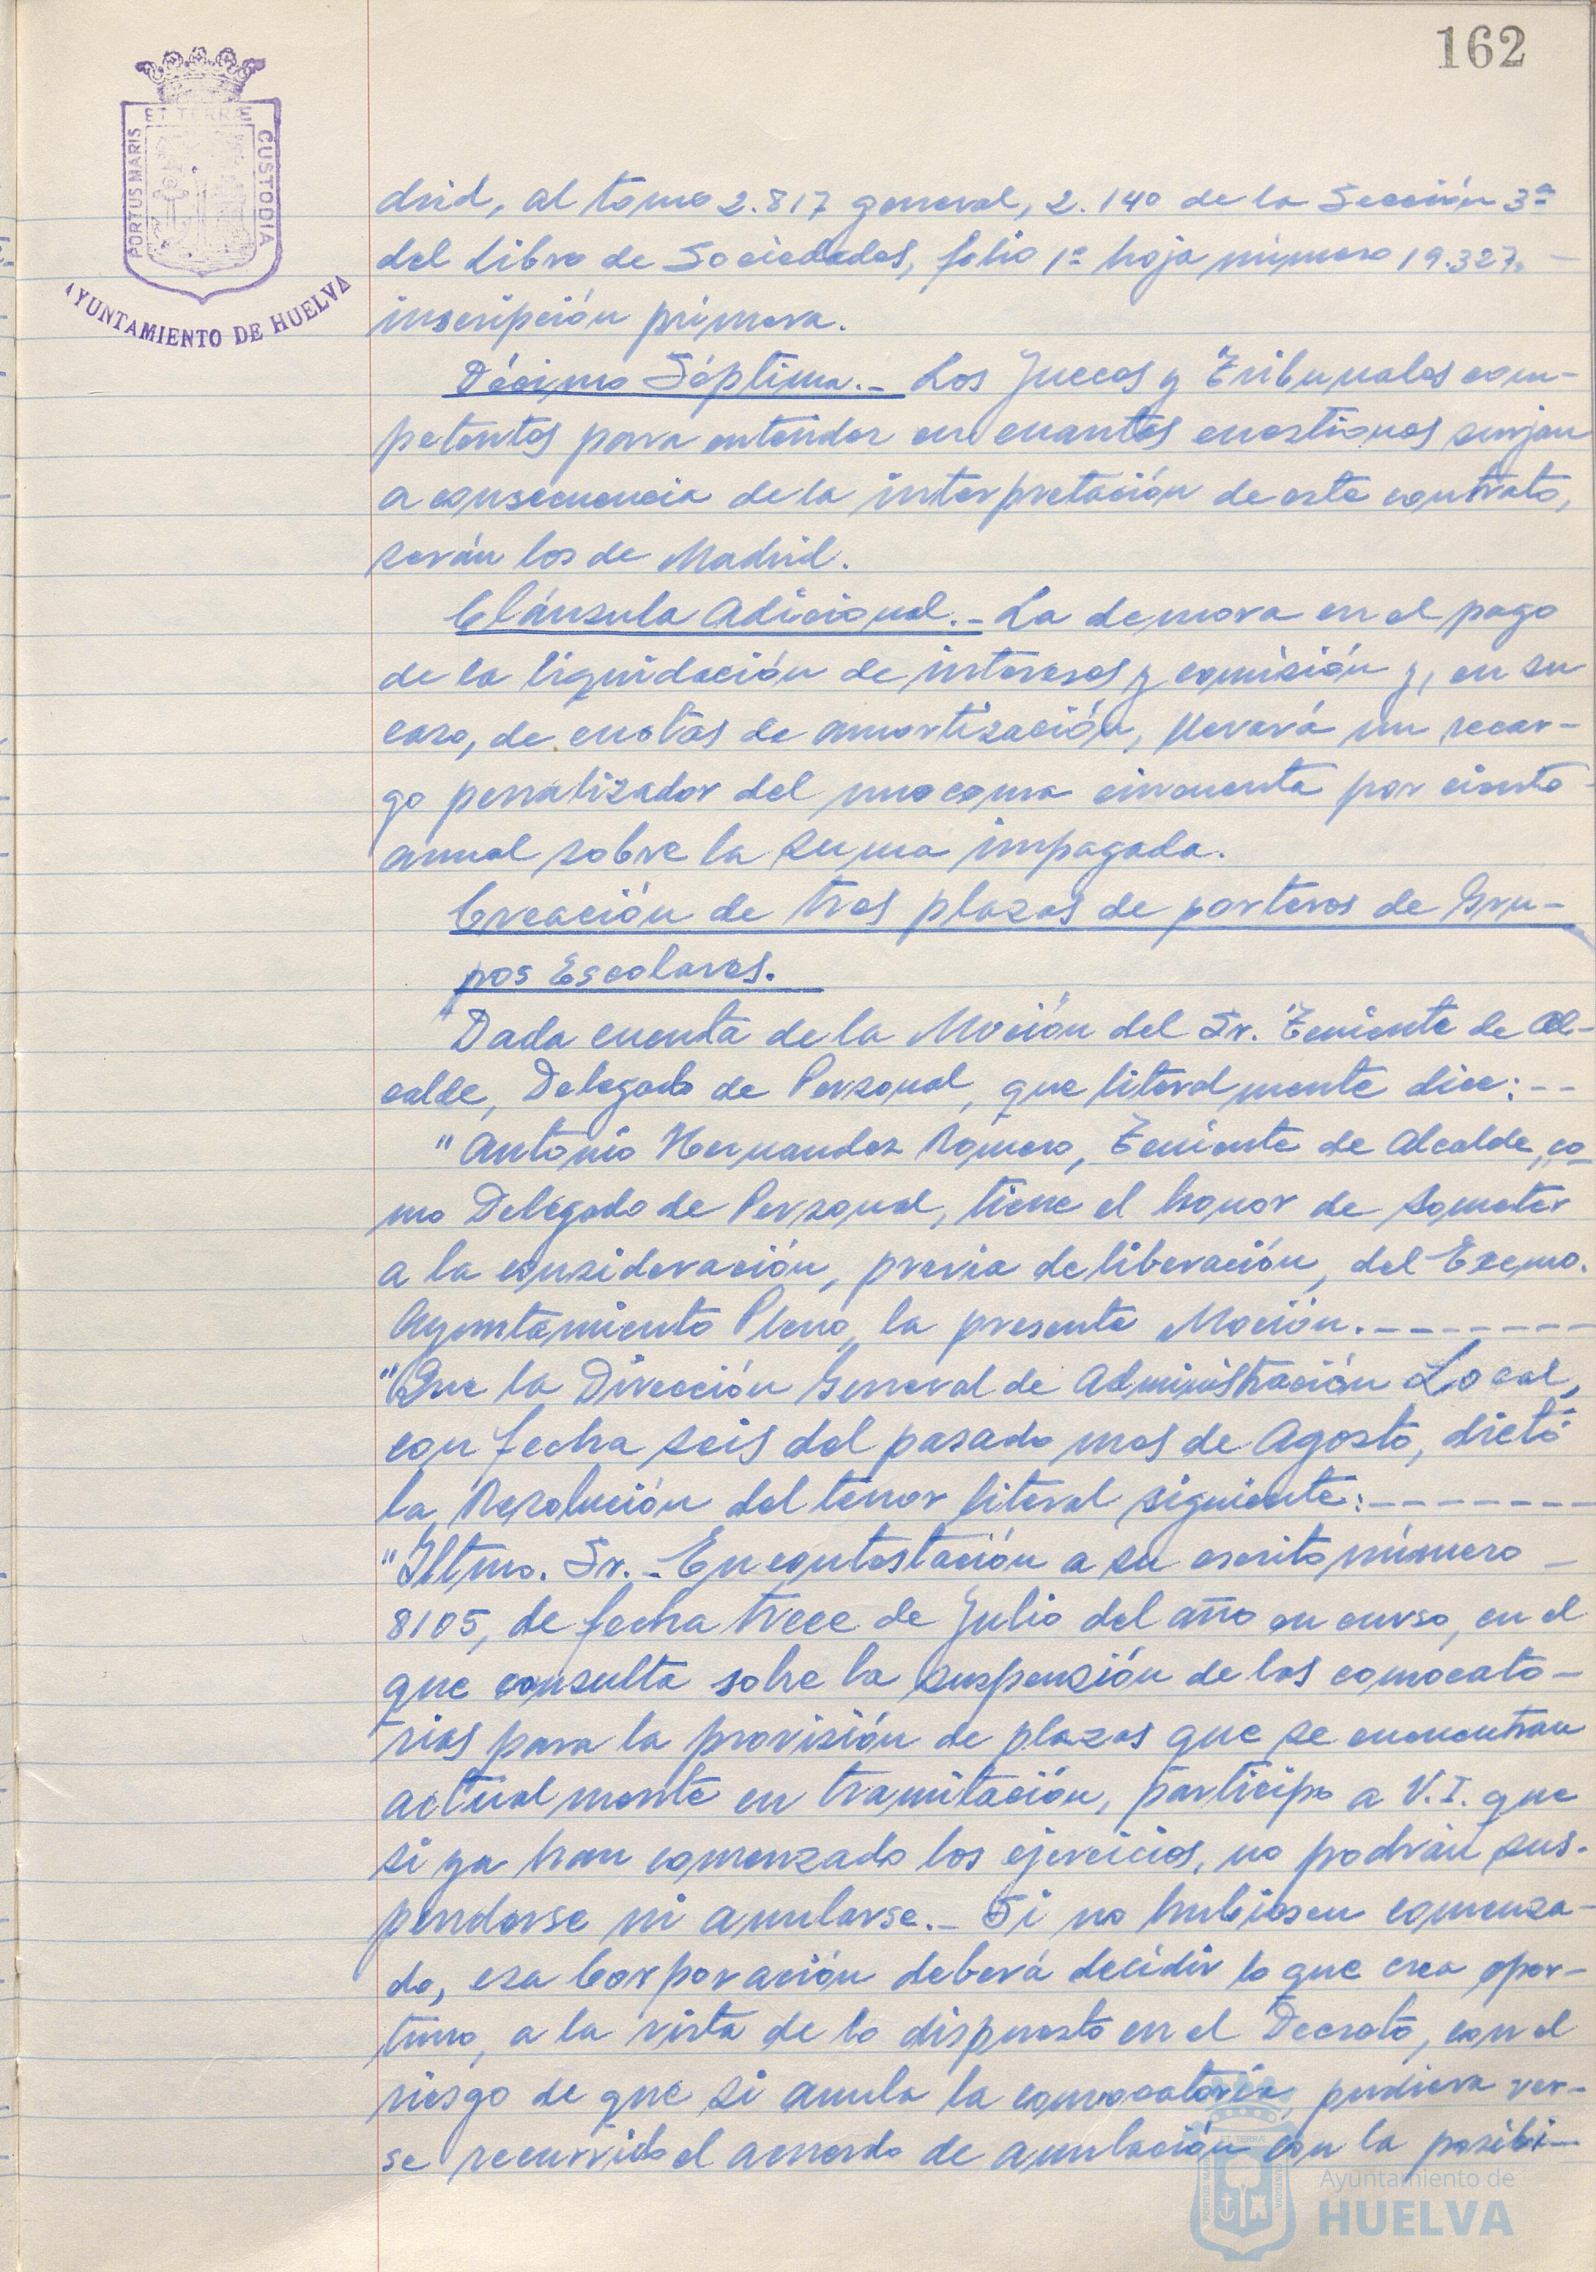 162
ET TERRÆ
PORTUS MARIS
CUSTODIA
AYUNTAMIENTO DE HUELVA
drid, al tomo 2.817 general, 2.140 de la Sección 3ª
del Libro de Sociedades, folio 1º hoja número 19.327,
inscripción primera.
Décimo Séptima.- Los Jueces y Tribunales com-
petentes para entender en cuantas cuestiones surjan
a consecuencia de la interpretación de este contrato,
serán los de Madrid.
Cláusula Adicional.- La demora en el pago
de la liquidación de intereses y comisión y, en su
caso, de cuotas de amortización, llevará un recar-
go penalizador del uno coma cincuenta por ciento
anual sobre la suma impagada.
Creación de tres plazas de porteros de Gru-
pos Escolares.
"Dada cuenta de la Moción del Sr. Teniente de Al-
calde, Delegado de Personal, que literalmente dice:--
"Antonio Hernandez Romero, Teniente de Alcalde, co-
mo Delegado de Personal, tiene el honor de someter
a la consideración, previa deliberación, del Excmo.
Ayuntamiento Pleno, la presente Moción.-------
"Que la Dirección General de Administración Local,
con fecha seis del pasado mes de Agosto, dictó
la Resolución del tenor literal siguiente:-------
"Iltmo. Sr.- En contestación a su escrito número
8105, de fecha trece de Julio del año en curso, en el
que consulta sobre la suspensión de las convocato-
rias para la provisión de plazas que se encuentran
actualmente en tramitación, participo a V.I. que
si ya han comenzado los ejercicios, no podrán sus-
penderse ni anularse.- Si no hubiesen comenza-
do, esa Corporación deberá decidir lo que crea opor-
tuno, a la vista de lo dispuesto en el Decreto, con el
riesgo de que si anula la convocatoria, pudiera ver-
se recurrido el acuerdo de anulación con la posibi-
Ayuntamiento de
HUELVA